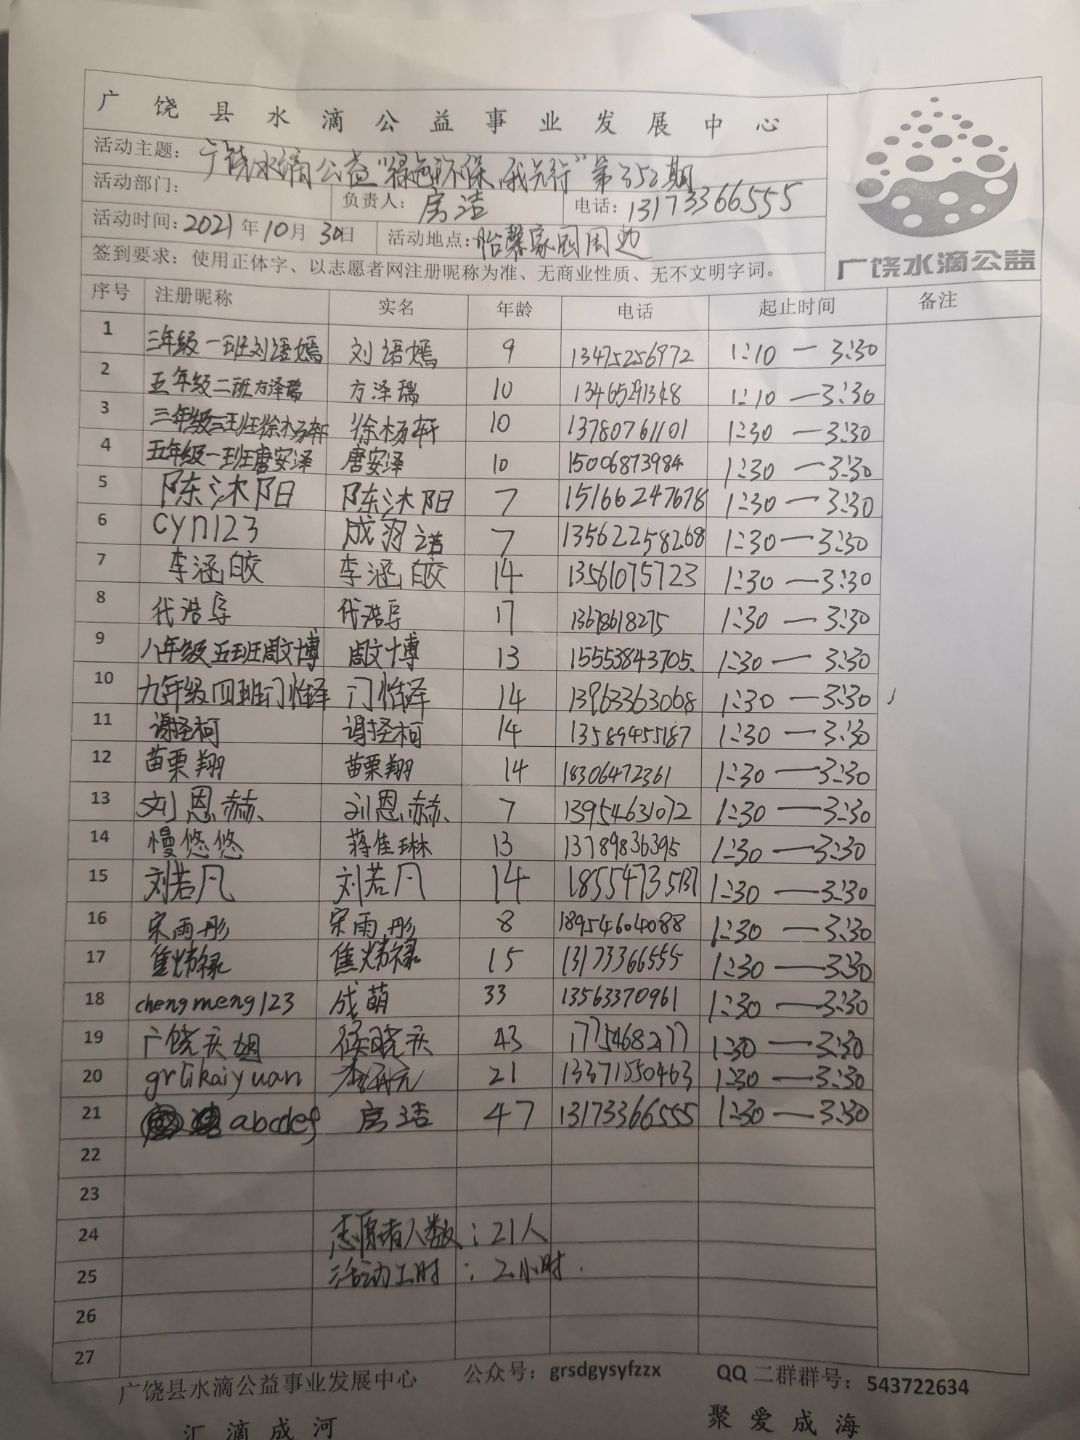 广饶县水滴公益事业发展中心
活动主题：广饶水滴公益“绿色环保,我先行”第352期
活动部门： 负责人：房洁 电话：13173366555
活动时间：2021年10月30日 活动地点：怡馨家园周边
签到要求：使用正体字、以志愿者网注册昵称为准、无商业性质、无不文明字词。
广饶水滴公益
序号 注册昵称 实名 年龄 电话 起止时间 备注
1 三年级一班刘语嫣 刘语嫣 9 13475256972 1:10—3:30
2 五年级二班方泽瑞 方泽瑞 10 13465291348 1:10—3:30
3 三年级三班徐杨轩 徐杨轩 10 13780761101 1:30—3:30
4 五年级一班唐安泽 唐安泽 10 15006873984 1:30—3:30
5 陈沐阳 陈沐阳 7 15166247678 1:30—3:30
6 cyn123 成羽诺 7 13562258268 1:30—3:30
7 李涵皎 李涵皎 14 13561075723 1:30—3:30
8 代浩导 代浩导 17 13678618275 1:30—3:30
9 八年级五班周文博 周文博 13 15553843705. 1:30—3:30
10 九年级四班门怡泽 门怡泽 14 13963363068 1:30—3:30
11 谢柯 谢柯 14 13589455187 1:30—3:30
12 苗栗翔 苗栗翔 14 18306472361 1:30—3:30
13 刘恩赫 刘恩赫 7 13954631072 1:30—3:30
14 慢悠悠 蒋佳琳 13 13789836395 1:30—3:30
15 刘若凡 刘若凡 14 18554735137 1:30—3:30
16 宋雨彤 宋雨彤 8 18954604088 1:30—3:30
17 焦炜禄 焦炜禄 15 13173366555 1:30—3:30
18 chengmeng123 成萌 33 13563370961 1:30—3:30
19 广饶庆姐 徐晓庆 43 1775468277 1:30—3:30
20 grlikaiyuan 李开元 21 13371550463 1:30—3:30
21 abcdef 房洁 47 13173366555 1:30—3:30
22
23
24 志愿者人数：21人
25 活动工时：2小时.
26
27
广饶县水滴公益事业发展中心 公众号：grsdgysyfzzx QQ二群群号：543722634
汇滴成河 聚爱成海